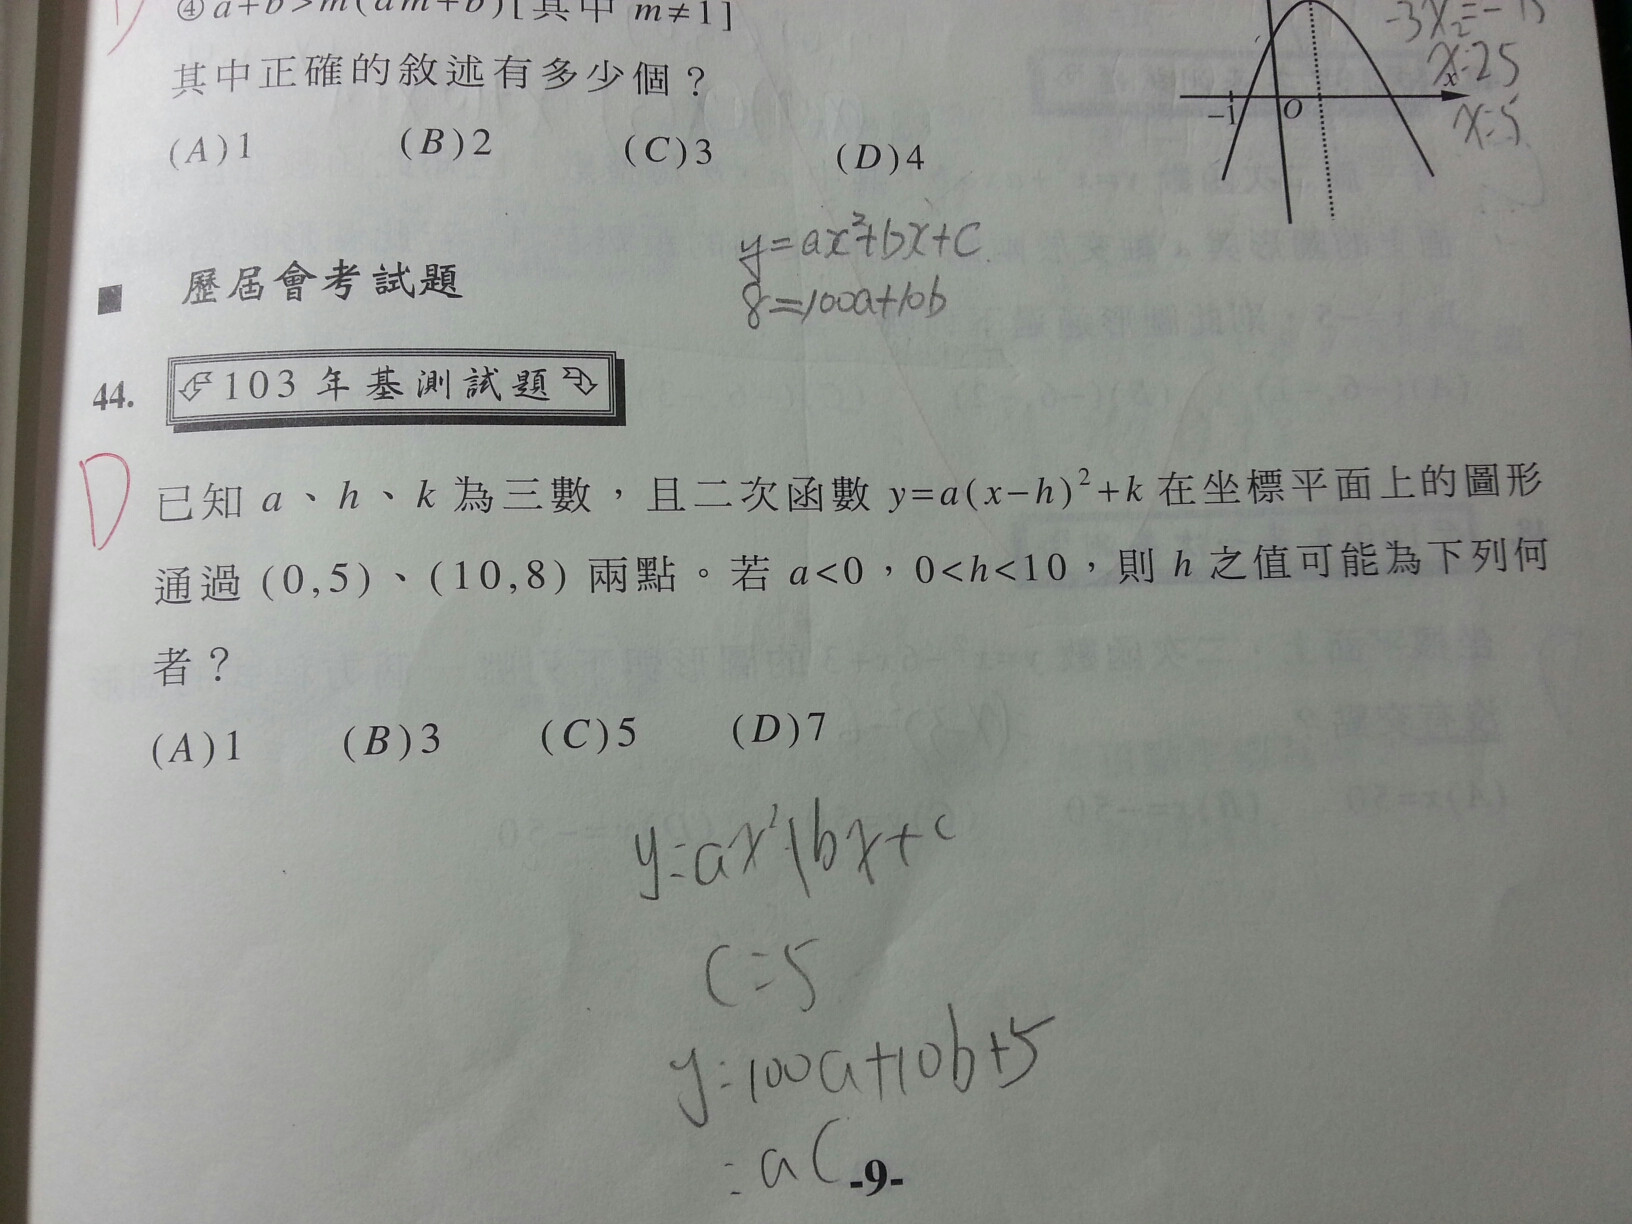 ④a+b>m(am+b)[其中 m≠1]
其中正確的敘述有多少個？
(A)1 (B)2 (C)3 (D)4
-1 O x
x=25
x=5
y=ax²+bx+c
8=100a+10b
■ 歷屆會考試題
44. 103 年基測試題
D
已知 a、h、k 為三數，且二次函數 y=a(x-h)²+k 在坐標平面上的圖形
通過 (0,5)、(10,8) 兩點。若 a<0，0<h<10，則 h 之值可能為下列何
者？
(A)1 (B)3 (C)5 (D)7
y=ax²+bx+c
c=5
y=100a+10b+5
=a(
-9-